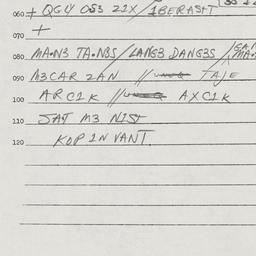 060 + QGY OS3 21X / 1BERASHT
070 +
080 MA•N3 TA•N3S / LANG3 DANG3S /
090 M3CAR 2AN // TAJE
100 ARC1K // AXC1K
110 SAT M3 NIST
120 KOP IN VANT.